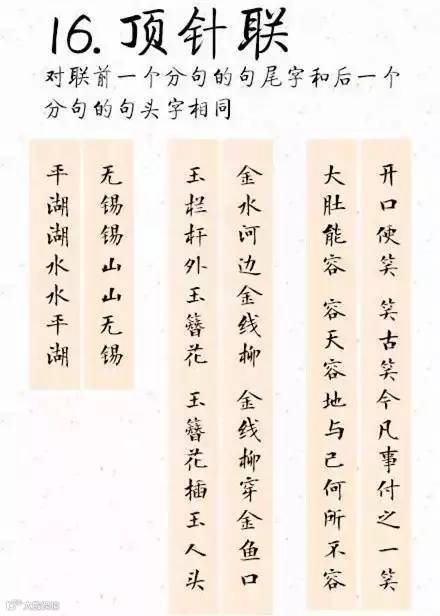 16. 顶针联
对联前一个分句的句尾字和后一个
分句的句头字相同
开口便笑 笑古笑今凡事付之一笑
大肚能容 容天容地与己何所不容
金水河边金线柳 金线柳穿金鱼口
玉栏杆外玉簪花 玉簪花插玉人头
无锡锡山山无锡
平湖湖水水平湖